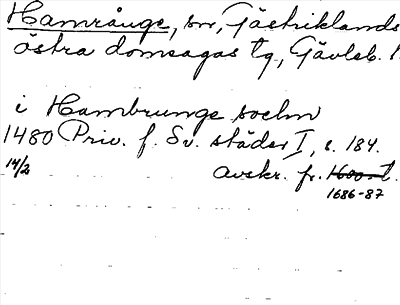 Hamrånge, sn, Gästriklands
östra domsagas tg, Gävleb. l.
i Hambrunge sochn
1480 Priv. f. Sv. städer I, s. 184.
14/2 avskr. fr.
1686-87